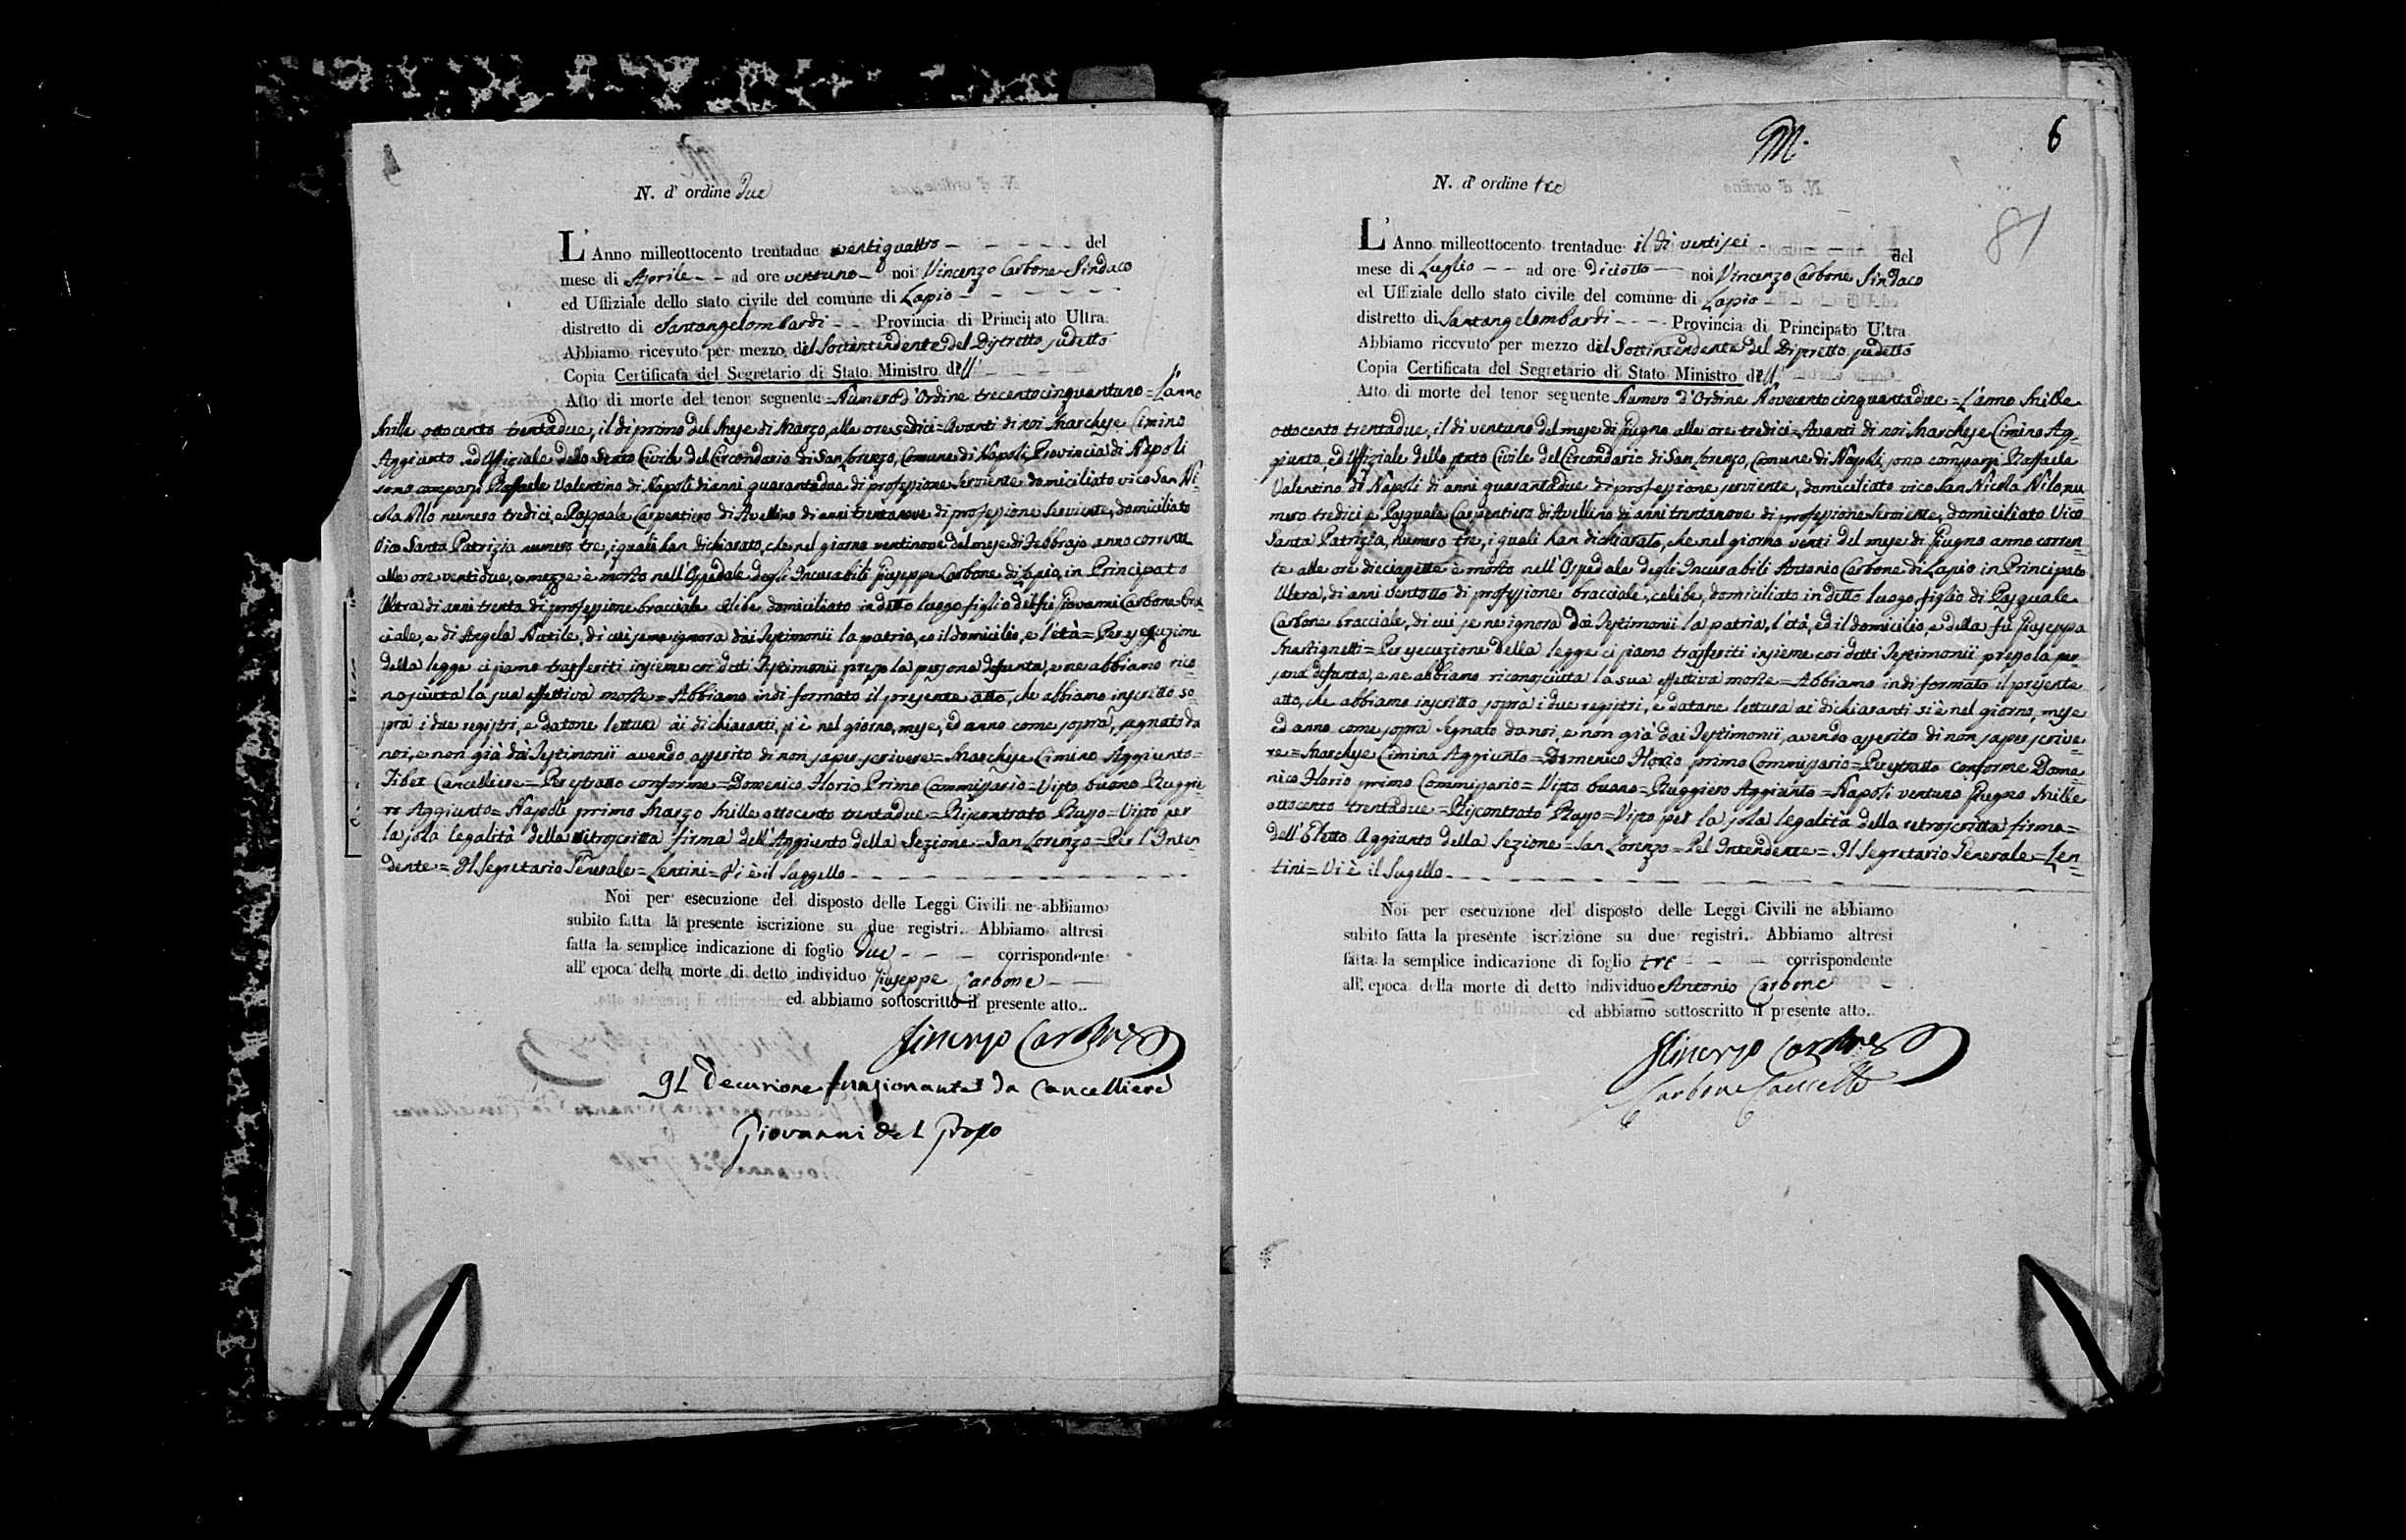 N. d' ordine due
L' Anno milleottocento trentadue ventiquattro - - - - - del
mese di Aprile - - ad ore ventuno - noi Vincenzo Carbone Sindaco
ed Uffiziale dello stato civile del comune di Lapio - - - - - -
distretto di Santangelombardi - - Provincia di Principato Ultra
Abbiamo ricevuto per mezzo del Sottintendente del Distretto sudetto
Copia Certificata del Segretario di Stato Ministro dell' - - - -
Atto di morte del tenor seguente = Numero d'Ordine trecentocinquantuno = L'anno
Mille ottocento trentadue, il di primo del Mese di Marzo, alle ore sedici = Avanti di noi Marchese Cimino
Aggiunto ed Uffiziale dello Stato Civile del Circondario di San Lorenzo, Comune di Napoli, Provincia di Napoli
sono comparsi Raffaele Valentino di Napoli di anni quarantadue di professione Serviente domiciliato vico San Ni-
cola Nilo numero tredici, e Pasquale Carpentiero di Avellino di anni trentanove di professione Serviente, domiciliato
Vico Santa Patrizia numero tre, i quali han dichiarato, che nel giorno ventinove del mese di Febbrajo anno corrente
alle ore ventidue, e mezze è morto nell'Ospedale degli Incurabili Giuseppe Carbone di Lapio, in Principato
Ultra di anni trenta di professione bracciale celibe domiciliato in detto luogo figlio del fù Giovanni Carbone bra-
ciale, e di Angela Natile, di cui se ne ignora dai Testimonii la patria, ed il domicilio, e l'età = Per esecuzione
della legge ci siamo trasferiti insieme coi detti Testimonii presso la persona defunta, e ne abbiamo rico-
nosciuta la sua effettiva morte = Abbiamo indi formato il presente atto, che abbiamo inscritto so-
pra i due registri, e datone lettura ai dichiaranti, si è nel giorno, mese, ed anno come sopra, segnato da
noi, e non già dai Testimonii avendo asserito di non saper scrivere = Marchese Cimino Aggiunto =
Cancelliere = Per estratto conforme = Domenico Florio Primo Commissario = Visto buono Ruggie-
ro Aggiunto = Napoli primo Marzo Mille ottocento trentadue = Riscontrato Russo = Visto per
la sola legalità della retroscritta firma dell'Aggiunto della Sezione = San Lorenzo = Per l'Inten-
dente = Il Segretario Generale = Lentini = Vi è il Suggello - - - - -
Noi per esecuzione del disposto delle Leggi Civili ne abbiamo
subito fatta la presente iscrizione su due registri. Abbiamo altresi
fatta la semplice indicazione di foglio due - - - corrispondente
all' epoca della morte di detto individuo Giuseppe Carbone - -
ed abbiamo sottoscritto il presente atto..
Vincenzo Carbone
Il Decurione funzionante da Cancelliere
Giovanni del Grosso
M.
6
81
N. d' ordine tre
L' Anno milleottocento trentadue il di ventisei - del
mese di Luglio - - ad ore diciotto - noi Vincenzo Carbone Sindaco
ed Uffiziale dello stato civile del comune di Lapio
distretto di Santangelombardi - - - Provincia di Principato Ultra
Abbiamo ricevuto per mezzo del Sottintendente del Distretto sudetto
Copia Certificata del Segretario di Stato Ministro dell'
Atto di morte del tenor seguente Numero d'Ordine Novecentocinquantadue = L'anno Mille
ottocento trentadue, il di ventuno del mese di Giugno alle ore tredici = Avanti di noi Marchese Cimino Ag-
giunto, ed Uffiziale dello stato Civile del Circondario di San Lorenzo, Comune di Napoli, sono comparsi Raffaele
Valentino di Napoli di anni quarantadue di professione serviente, domiciliato vico San Nicola Nilo, nu-
mero tredici e Pasquale Carpentiero di Avellino di anni trentanove di professione Serviente, domiciliato Vico
Santa Patrizia, numero tre, i quali han dichiarato, che nel giorno venti del mese di Giugno anno corren-
te alle ore diecissette è morto nell'Ospedale degli Incurabili Antonio Carbone di Lapio in Principato
Ultra, di anni ventotto di professione bracciale, celibe, domiciliato in detto luogo, figlio di Pasquale
Carbone bracciale, di cui se ne ignora dai Testimonii la patria, l'età, ed il domicilio, e della fù Giuseppa
Mastignetti = Per esecuzione della legge ci siamo trasferiti insieme coi detti Testimonii presso la per-
sona defunta, e ne abbiamo riconosciuta la sua effettiva morte = Abbiamo indi formato il presente
atto, che abbiamo inscritto sopra i due registri, e datane lettura ai dichiaranti si è nel giorno, mese
ed anno come sopra segnato da noi, e non già dai Testimonii, avendo asserito di non saper scrive-
re = Marchese Cimino Aggiunto = Domenico Florio primo Commissario = Per estratto conforme Dome-
nico Florio primo Commissario = Visto buono = Ruggiero Aggiunto = Napoli ventuno Giugno Mille
ottocento trentadue = Riscontrato Russo = Visto per la sola legalità della retroscritta firma =
dell'Eletto Aggiunto della Sezione = San Lorenzo = Pel Intendente = Il Segretario Generale = Len-
tini = Vi è il Sugello - - - - -
Noi per esecuzione del disposto delle Leggi Civili ne abbiamo
subito fatta la presente iscrizione su due registri. Abbiamo altresi
fatta la semplice indicazione di foglio tre - - - corrispondente
all' epoca della morte di detto individuo Antonio Carbone -
ed abbiamo sottoscritto il presente atto..
Vincenzo Carbone
Carbone Cancelle